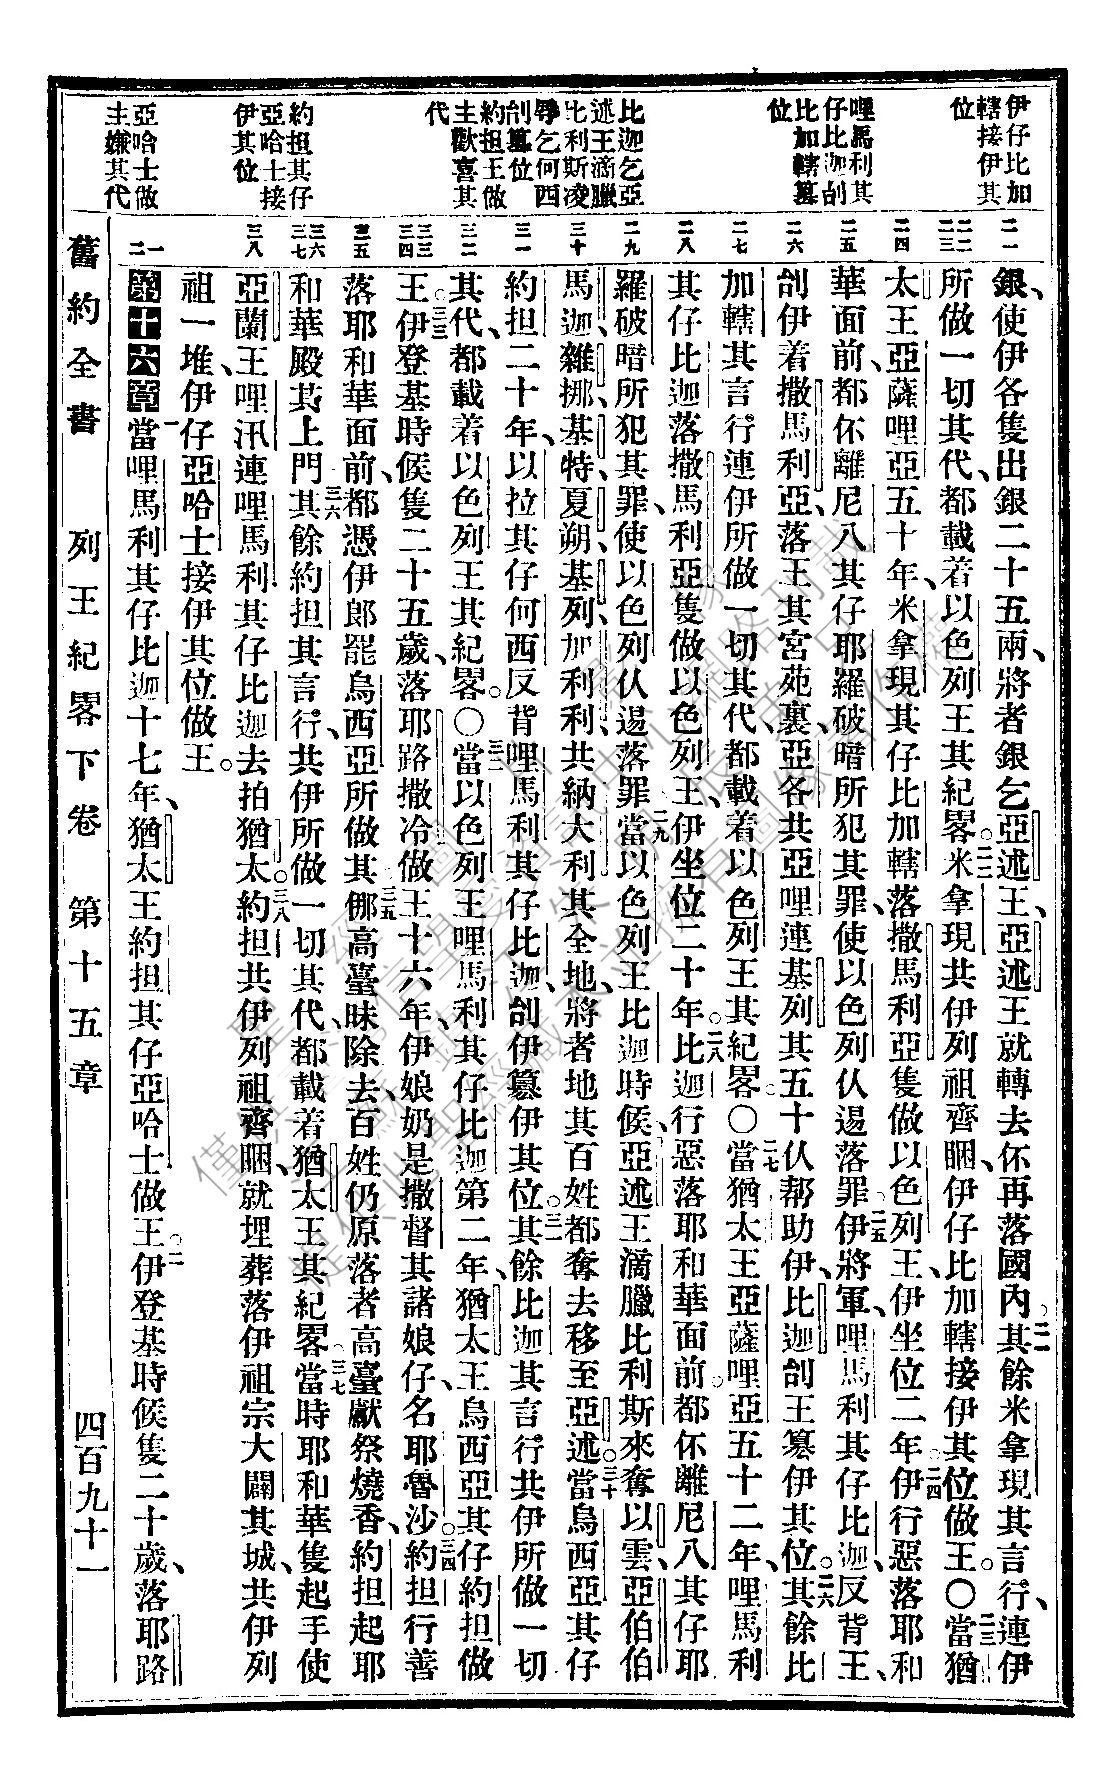 伊仔比加
轄接伊其
位
哩馬利其
仔比迦刣
比加轄篡
位
比迦乞亞
述王滴臘
比利斯凌
辱乞何西
刣篡位
約担王做
主歡喜其
代
約担其仔
亞哈士接
伊其位
亞哈士做
主嫌其代
二一
二二
二三
二四
二五
二六
二七
二八
二九
三十
三一
三二
三三
三四
三五
三六
三七
三八
一
二
銀、使伊各隻出銀二十五兩、將者銀乞亞述王、亞述王就轉去伓再落國內。二一其餘米拿現其言行、連伊
所做一切其代、都載着以色列王其紀畧。二二米拿現共伊列祖齊睏、伊仔比加轄接伊其位做王。〇二三當猶
太王亞薩哩亞五十年、米拿現其仔比加轄落撒馬利亞隻做以色列王、伊坐位二年。二四伊行惡落耶和
華面前、都伓離尼八其仔耶羅破暗所犯其罪、使以色列仈逿落罪。二五伊將軍、哩馬利其仔比迦、反背王、
刣伊着撒馬利亞、落王其宮苑裏、亞各共亞哩連基列其五十仈帮助伊、比迦刣王篡伊其位。二六其餘比
加轄其言行、連伊所做一切其代、都載着以色列王其紀畧。〇二七當猶太王亞薩哩亞五十二年、哩馬利
其仔比迦落撒馬利亞隻做以色列王、伊坐位二十年。二八比迦行惡落耶和華面前。都伓離尼八其仔耶
羅破暗所犯其罪、使以色列仈逿落罪。二九當以色列王比迦時候、亞述王滴臘比利斯來奪以雲、亞伯伯
馬迦、雜挪、基特、夏朔、基列、加利利、共納大利其全地、將者地其百姓都奪去移至亞述。三十當烏西亞其仔
約担二十年、以拉其仔何西反背哩馬利其仔比迦、刣伊篡伊其位。三一其餘比迦其言行、共伊所做一切
其代、都載着以色列王其紀畧。〇三二當以色列王哩馬利其仔比迦第二年、猶太王烏西亞其仔約担做
王。三三伊登基時候隻二十五歲、落耶路撒冷做王十六年、伊娘奶是撒督其諸娘仔、名耶魯沙。三四約担行善
落耶和華面前、都憑伊郎罷烏西亞所做其。三五挪高臺昧除去、百姓仍原落者高臺獻祭燒香、約担起耶
和華殿其上門。三六其餘約担其言行、共伊所做一切其代、都載着猶太王其紀畧。三七當時耶和華隻起手使
亞蘭王哩汛連哩馬利其仔比迦去拍猶太。三八約担共伊列祖齊睏、就埋葬落伊祖宗大闢其城、共伊列
祖一堆、伊仔亞哈士接伊其位做王。
第十六章一當哩馬利其仔比迦十七年、猶太王約担其仔亞哈士做王。二伊登基時候隻二十歲、落耶路
舊約全書　列王紀畧下卷　第十五章　四百九十一